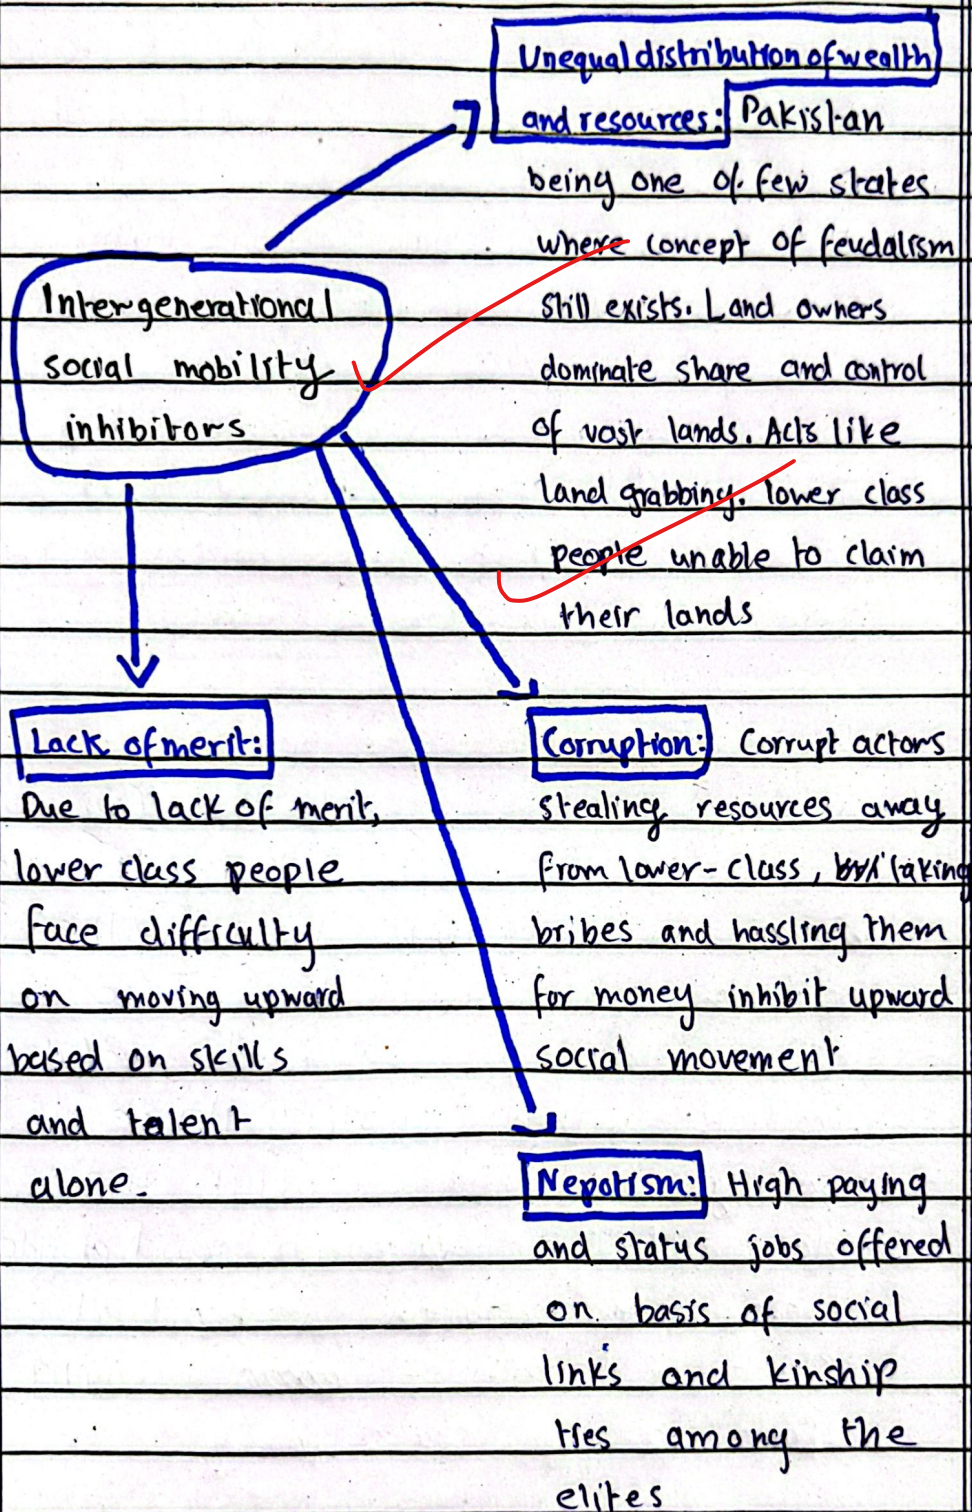 Unequal distribution of wealth
and resources: Pakistan
being one of few states
where concept of feudalism
still exists. Land owners
dominate share and control
of vast lands. Acts like
land grabbing. lower class
people unable to claim
their lands
Intergenerational
social mobility
inhibitors
Lack of merit:
Due to lack of merit,
lower class people
face difficulty
on moving upward
based on skills
and talent
alone.
Corruption: Corrupt actors
stealing resources away
from lower-class, taking
bribes and hassling them
for money inhibit upward
social movement
Nepotism: High paying
and status jobs offered
on basis of social
links and kinship
ties among the
elites